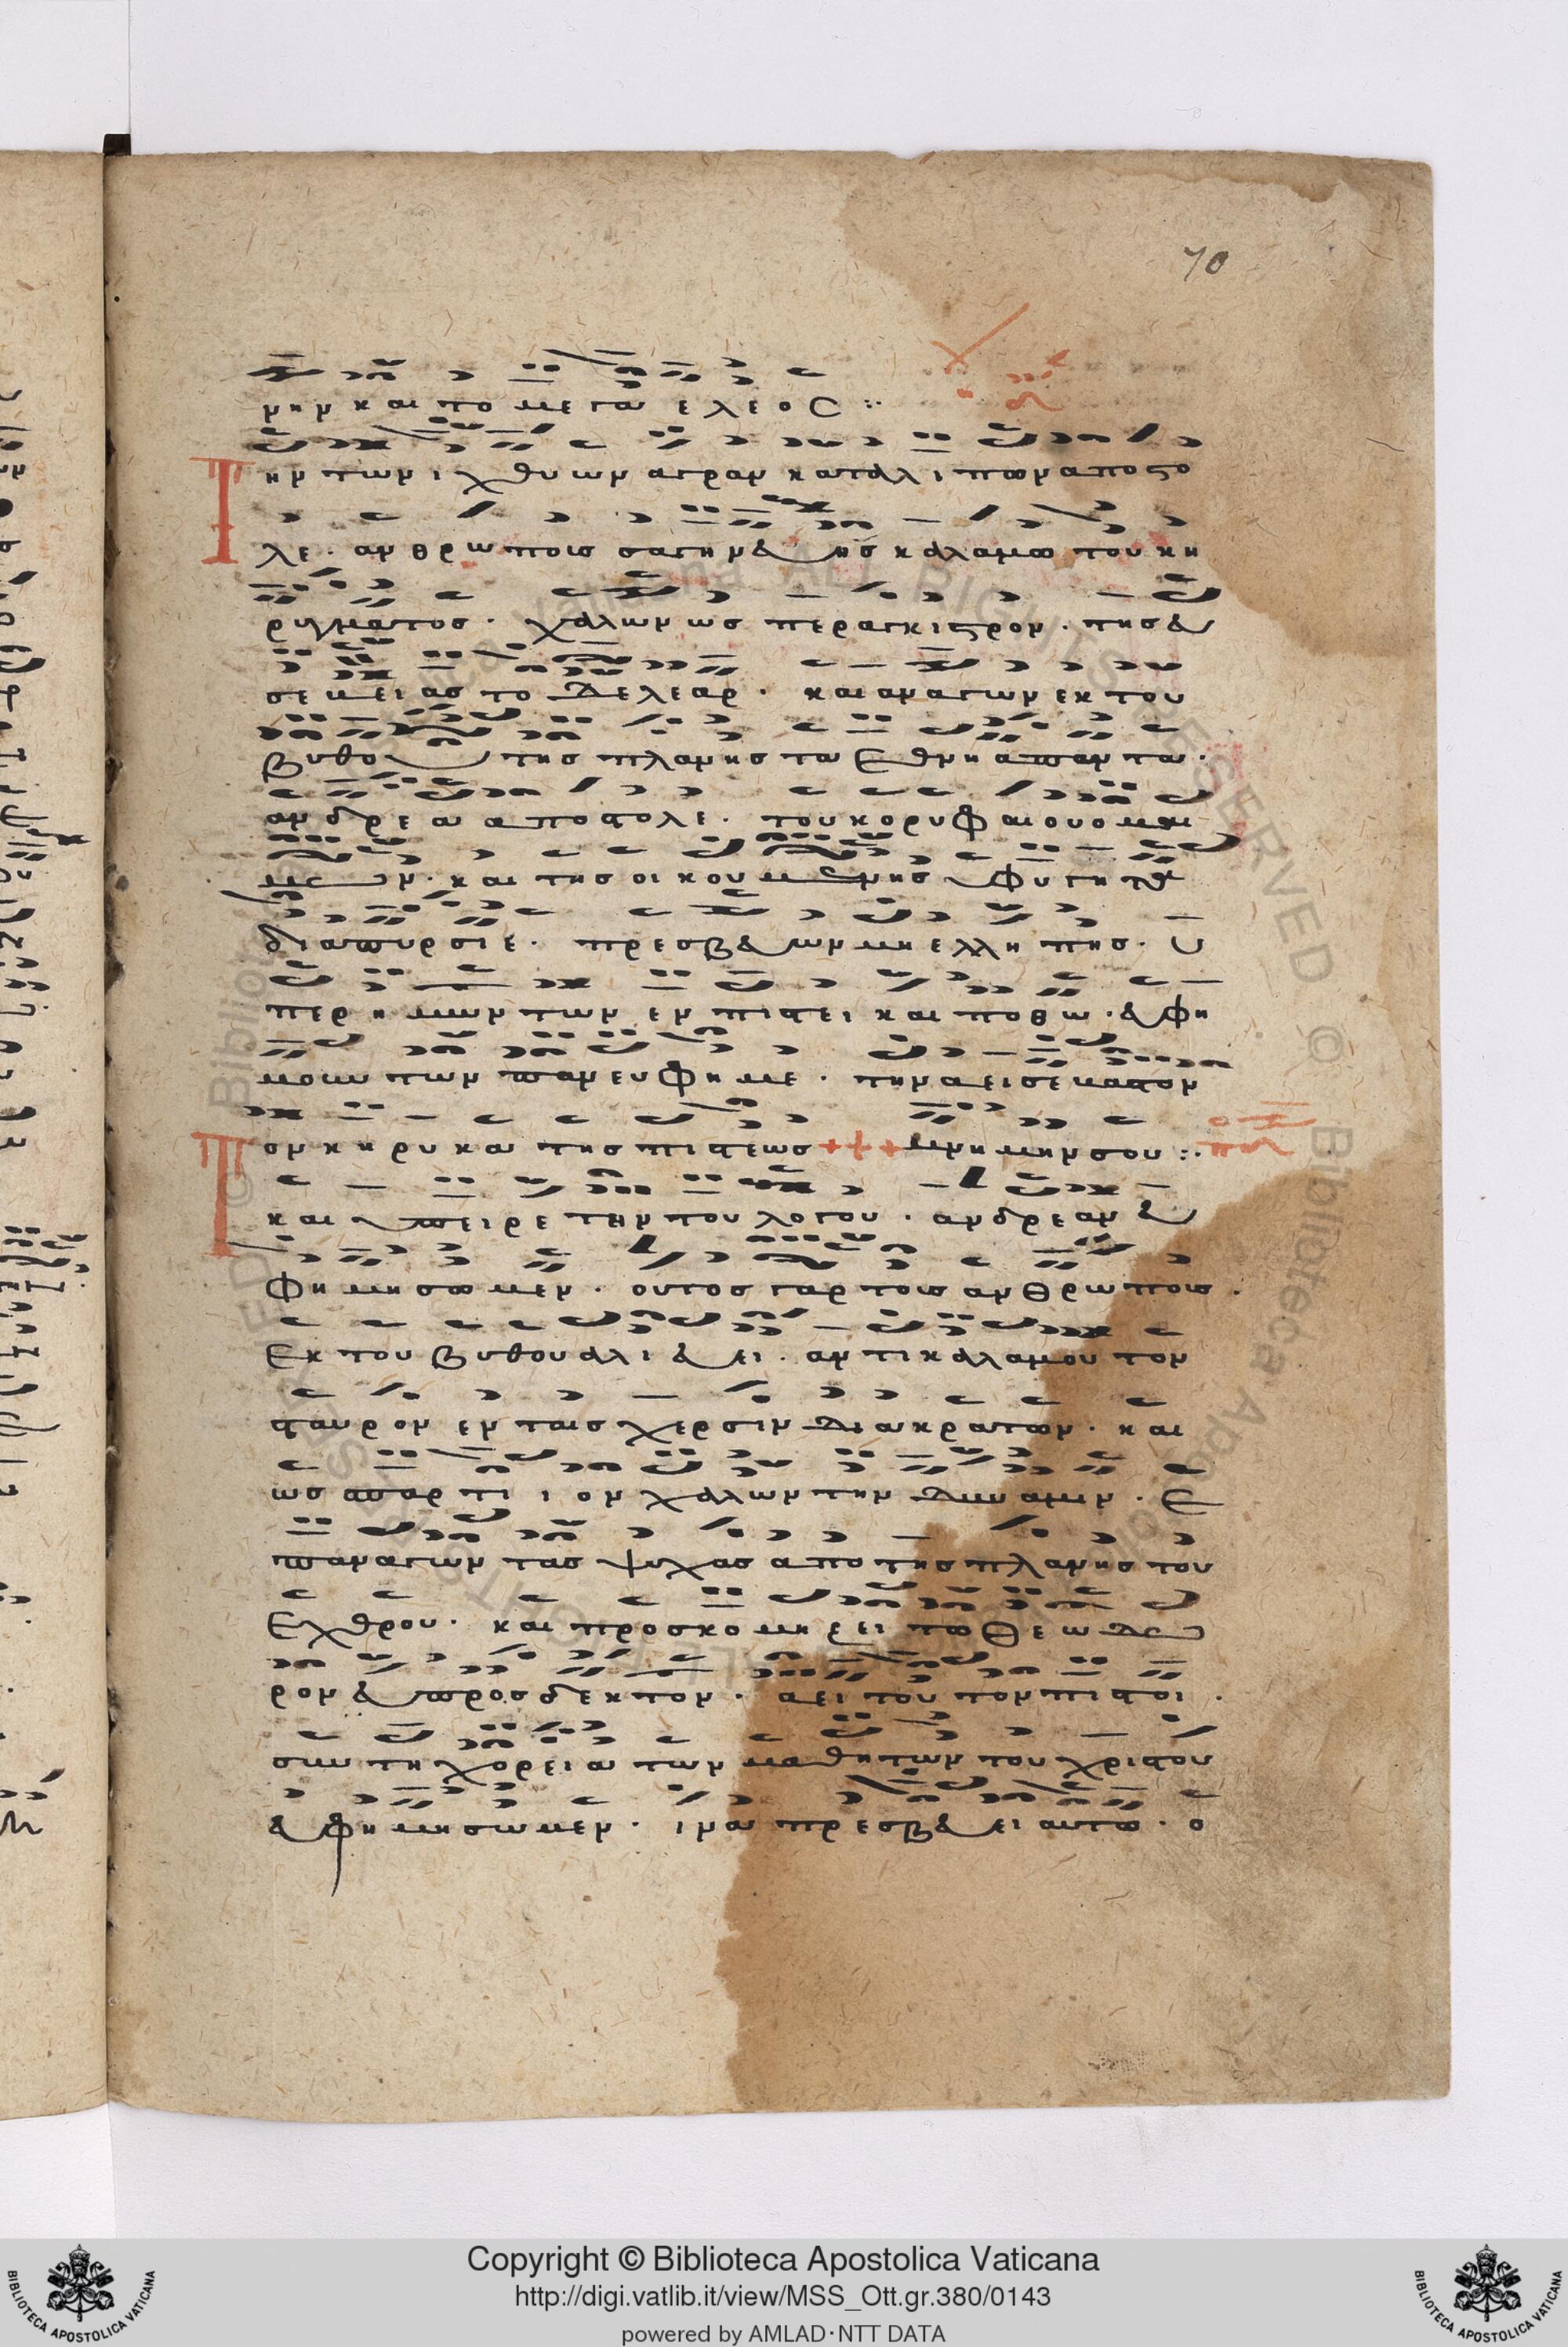 70
νην και το μεγα ελεος :·
Την των ιχθυων αγραν καταλιπων αποστο
λε · ανθρωποις σαγηνευης καλαμω του κη
ρυγματος · χαλων ως περ αγκιστρον · της ευ
σεβειας το δελεαρ · και αναγων εκ του
βυθου της πλανης τα εθνη απαντα ·
ανδρεα αποστολε · του κορυφαιου ομαι
μων · και της οικουμενης υφυγητα
διαπρυσιε · πρεσβευων μη ελληπης · υ
περ ημων των εν πιστει και ποθω · ευφη
μουντων πανευφημε · την αεισεβαστον
μνημην σου :·
Τον κηρυκα της πιστεως +++
και υπηρετην του λογου · ανδρεαν ευ
φημησωμεν · ουτος γαρ τους ανθρωπους ·
Εκ του βυθου αλιευει · αντι καλαμου τον
σταυρον εν ταις χερσιν διακρατων · και
ως σπαρτιον χαλων την δυναμιν · Ε
παναγων τας ψυχας απο της πλανης του
Εχθρου · και προσκομηζει τω Θεω δω
ρον ευπροσδεκτον · αει τουτον πιστοι ·
συν τη χορεια των μαθητων του χριστου
ευφημησωμεν · ινα πρεσβευει αυτω · ο
Copyright © Biblioteca Apostolica Vaticana
http://digi.vatlib.it/view/MSS_Ott.gr.380/0143
powered by AMLAD·NTT DATA
BIBLIOTECA APOSTOLICA VATICANA
BIBLIOTECA APOSTOLICA VATICANA